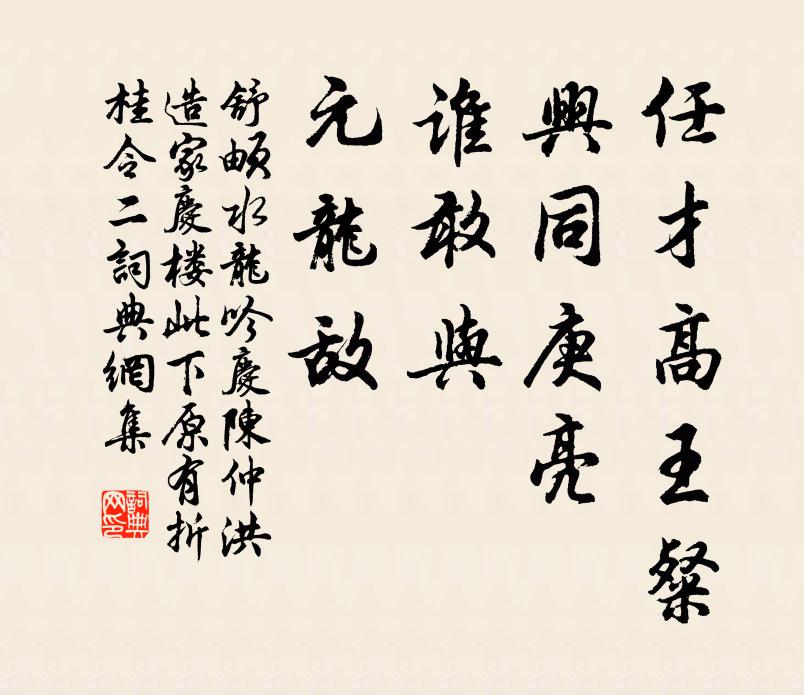 任才高王粲
興同庾亮
誰敢與
元龍敵
舒頔水龍吟慶陳仲洪
造家慶楼此下原有折
桂令二詞典網集
詞典网印